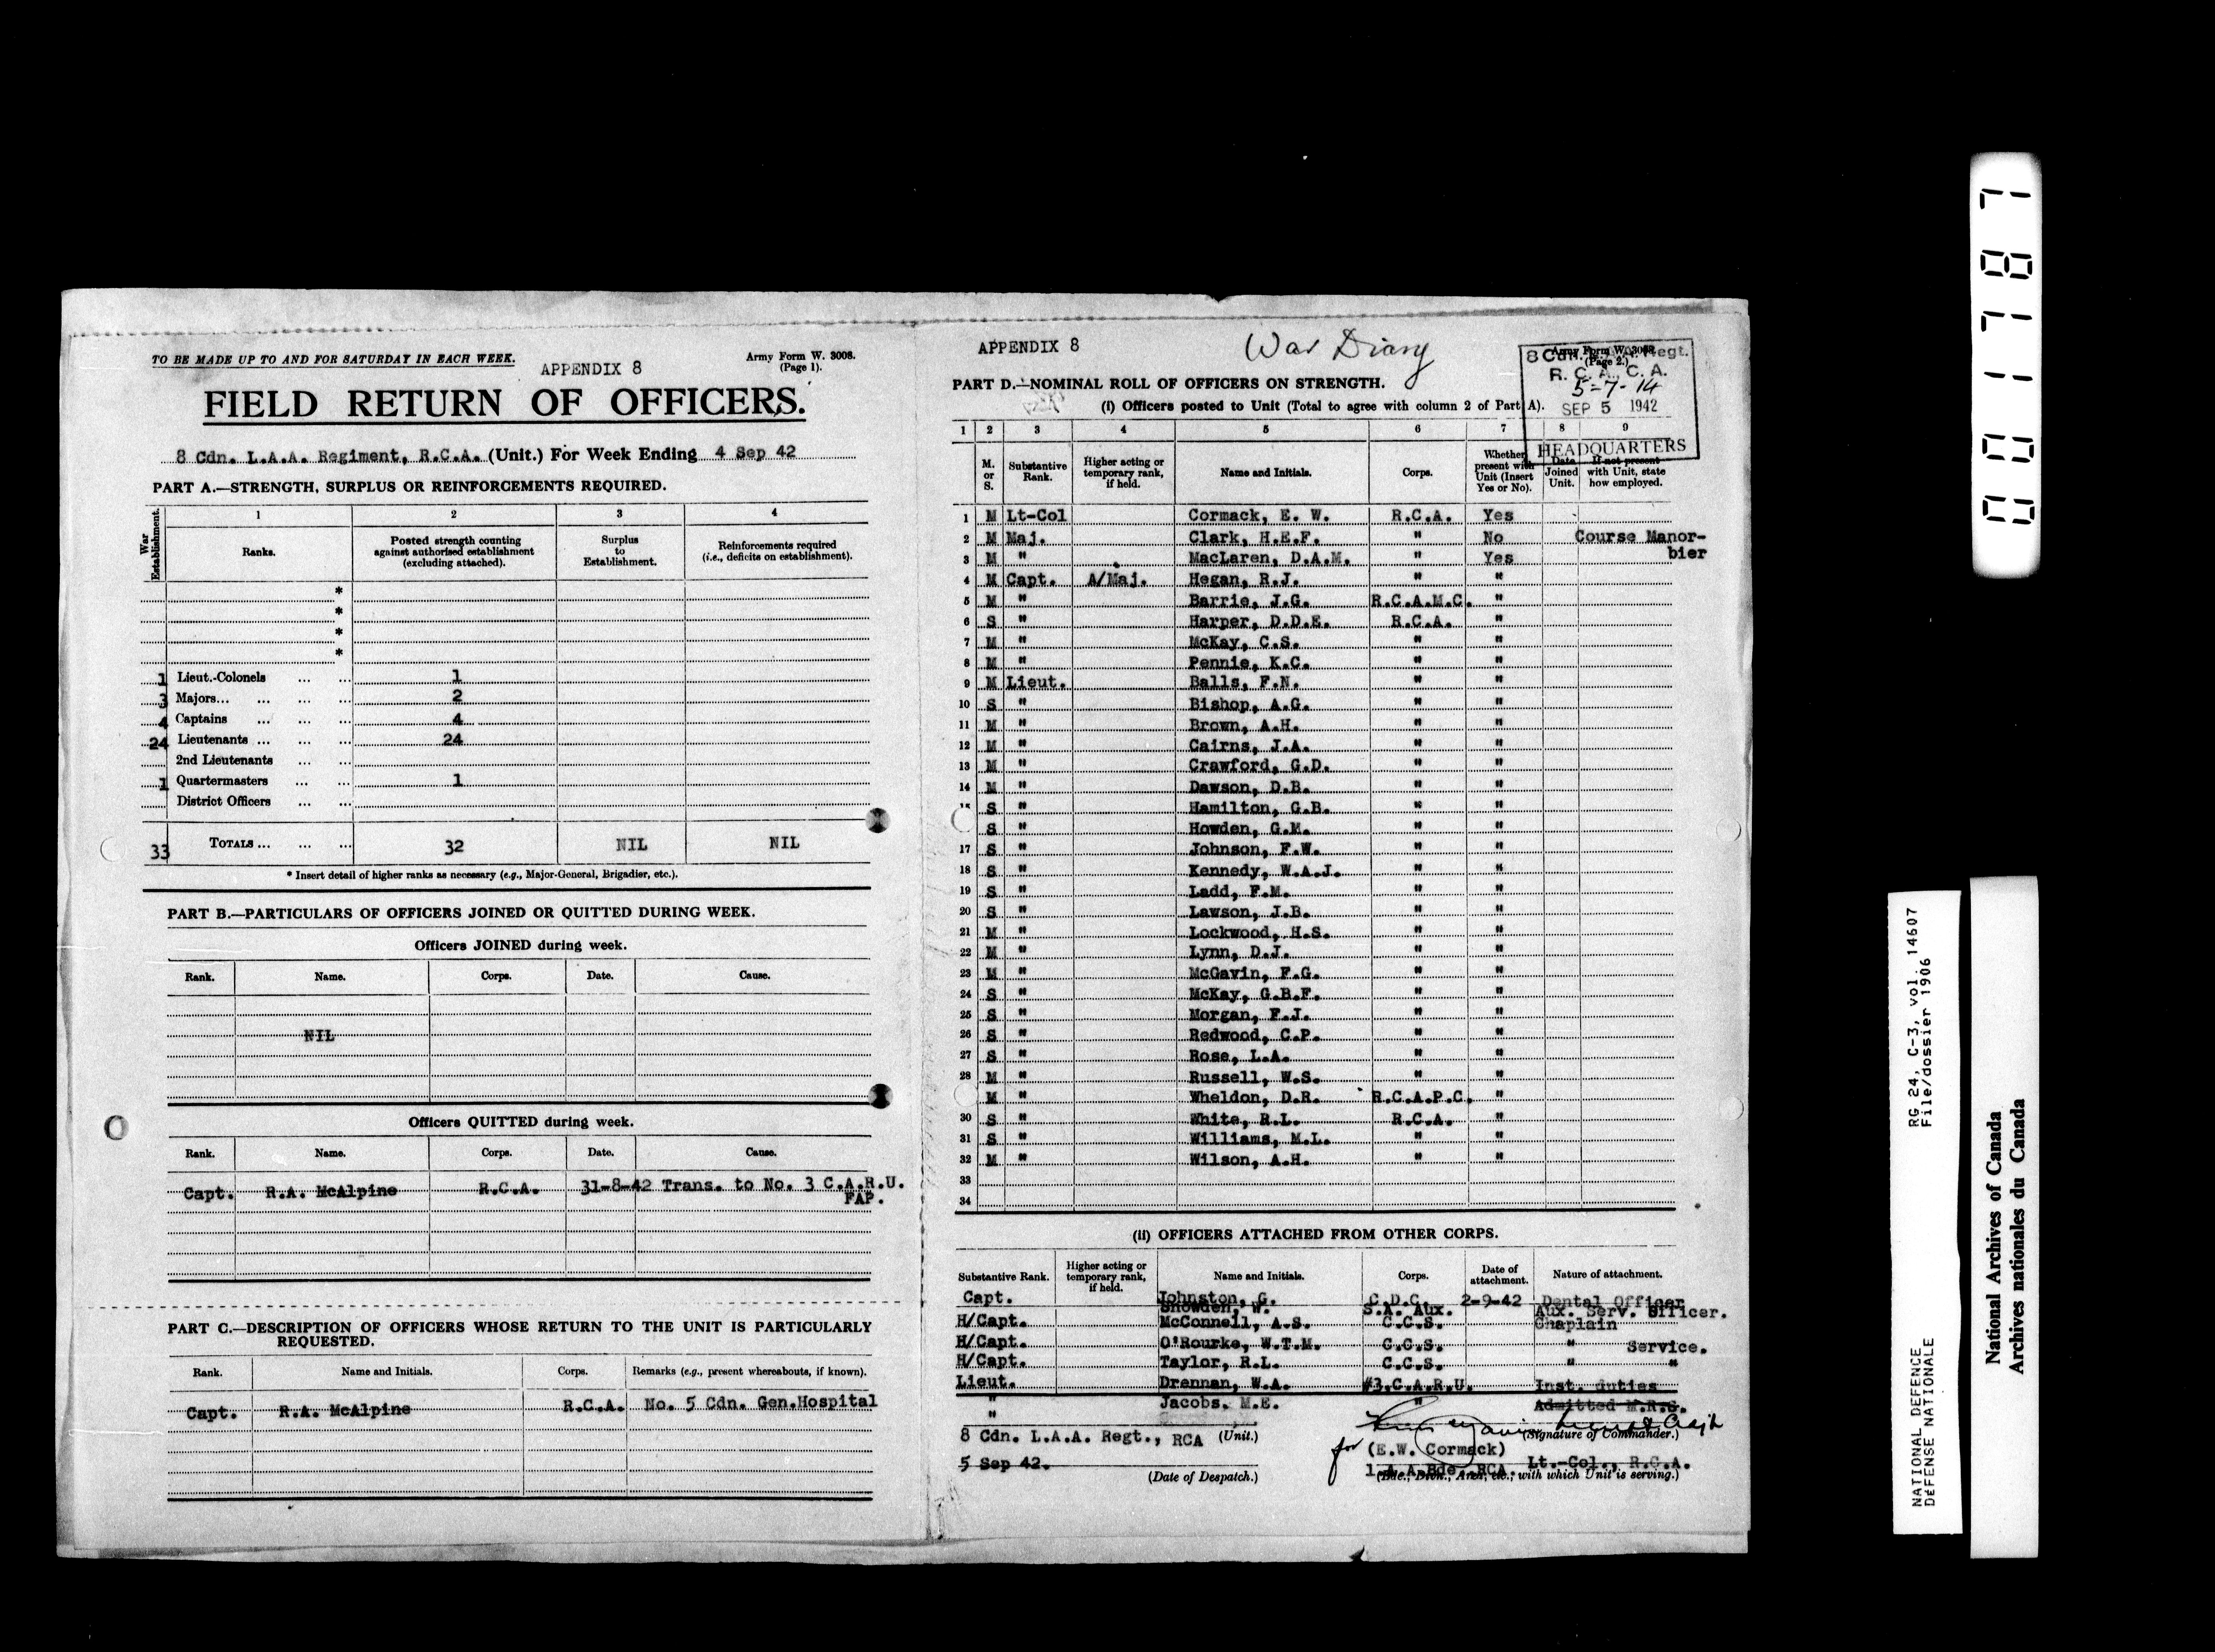 TO BE MADE UP TO AND FOR SATURDAY IN EACH WEEK.
APPENDIX 8
Army Form W. 3008.
(Page 1).
FIELD RETURN OF OFFICERS.
8 Cdn. L.A.A. Regiment, R.C.A. (Unit.) For Week Ending 4 Sep 42
PART A.—STRENGTH, SURPLUS OR REINFORCEMENTS REQUIRED.
War Establishment. 1 2 3 4
Ranks. Posted strength counting against authorised establishment (excluding attached). Surplus to Establishment. Reinforcements required (i.e., deficits on establishment).
*
*
*
*
1 Lieut.-Colonels ... ... 1
3 Majors... ... ... ... 2
4 Captains ... ... ... 4
24 Lieutenants ... ... ... 24
2nd Lieutenants ... ...
1 Quartermasters ... ... 1
District Officers ... ...
33 TOTALS ... ... ... 32 NIL NIL
* Insert detail of higher ranks as necessary (e.g., Major-General, Brigadier, etc.).
PART B.—PARTICULARS OF OFFICERS JOINED OR QUITTED DURING WEEK.
Officers JOINED during week.
Rank. Name. Corps. Date. Cause.
NIL
Officers QUITTED during week.
Rank. Name. Corps. Date. Cause.
Capt. R.A. McAlpine R.C.A. 31-8-42 Trans. to No. 3 C.A.R.U.
FAP.
PART C.—DESCRIPTION OF OFFICERS WHOSE RETURN TO THE UNIT IS PARTICULARLY
REQUESTED.
Rank. Name and Initials. Corps. Remarks (e.g., present whereabouts, if known).
Capt. R.A. McAlpine R.C.A. No. 5 Cdn. Gen.Hospital
APPENDIX 8
War Diary
Army Form W. 3008.
(Page 2.)
8 Cdn. L.A.A. Regt.
R. C. A., C. A.
5-7-14
SEP 5 1942
HEADQUARTERS
PART D.—NOMINAL ROLL OF OFFICERS ON STRENGTH.
(i) Officers posted to Unit (Total to agree with column 2 of Part A).
1 2 3 4 5 6 7 8 9
M. or S. Substantive Rank. Higher acting or temporary rank, if held. Name and Initials. Corps. Whether present with Unit (Insert Yes or No). Date Joined Unit. If not present with Unit, state how employed.
1 M Lt-Col Cormack, E. W. R.C.A. Yes
2 M Maj. Clark, H.E.F. " No Course Manor-
bier
3 M " MacLaren, D.A.M. " Yes
4 M Capt. A/Maj. Hegan, R.J. " "
5 M " Barrie, J.G. R.C.A.M.C. "
6 S " Harper, D.D.E. R.C.A. "
7 M " McKay, C.S. " "
8 M " Pennie, K.C. " "
9 M Lieut. Balls, F.N. " "
10 S " Bishop, A.G. " "
11 M " Brown, A.H. " "
12 M " Cairns, J.A. " "
13 M " Crawford, G.D. " "
14 M " Dawson, D.B. " "
15 S " Hamilton, G.B. " "
S " Howden, G.M. " "
17 S " Johnson, F.W. " "
18 S " Kennedy, W.A.J. " "
19 S " Ladd, F.M. " "
20 S " Lawson, J.B. " "
21 M " Lockwood, H.S. " "
22 M " Lynn, D.J. " "
23 M " McGavin, F.G. " "
24 S " McKay, G.B.F. " "
25 S " Morgan, F.J. " "
26 S " Redwood, C.P. " "
27 S " Rose, L.A. " "
28 M " Russell, W.S. " "
M " Wheldon, D.R. R.C.A.P.C. "
30 S " White, R.L. R.C.A. "
31 S " Williams, M.L. " "
32 M " Wilson, A.H. " "
33
34
(ii) OFFICERS ATTACHED FROM OTHER CORPS.
Substantive Rank. Higher acting or temporary rank, if held. Name and Initials. Corps. Date of attachment. Nature of attachment.
Capt. Johnston, G. C.D.C. 2-9-42 Dental Officer
Snowden, W. S.A. Aux. Aux. Serv. Officer.
H/Capt. McConnell, A.S. C.C.S. Chaplain
H/Capt. O'Rourke, W.T.M. C.C.S. " Service.
H/Capt. Taylor, R.L. C.C.S. " "
Lieut. Drennan, W.A. #3.C.A.R.U. Inst. duties
" Jacobs, M.E. " Admitted M.R.S.
"
8 Cdn. L.A.A. Regt., RCA (Unit.) (Signature of Commander.)
for (E.W. Cormack)
Lt.-Col., R.C.A.
5 Sep 42. 1 A.A.Bde RCA.
(Date of Despatch.) (Bde., Divn., Area, etc., with which Unit is serving.)
001787
RG 24, C-3, vol. 14607
File/dossier 1906
NATIONAL DEFENCE
DÉFENSE NATIONALE
National Archives of Canada
Archives nationales du Canada